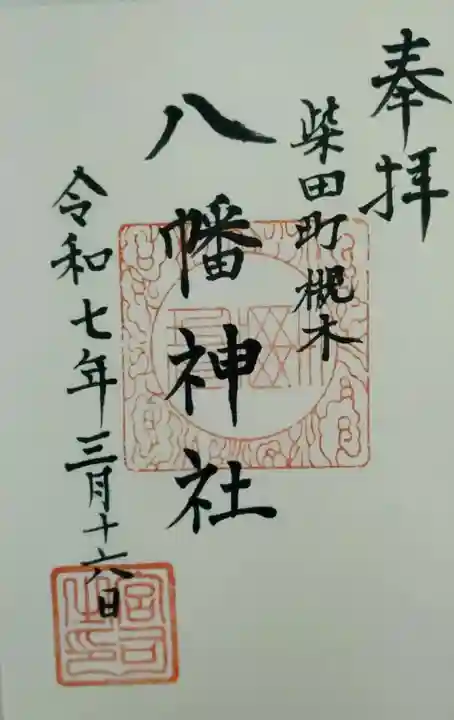 奉拝
柴田町槻木
八幡神社
令和七年三月十六日
宮司之印